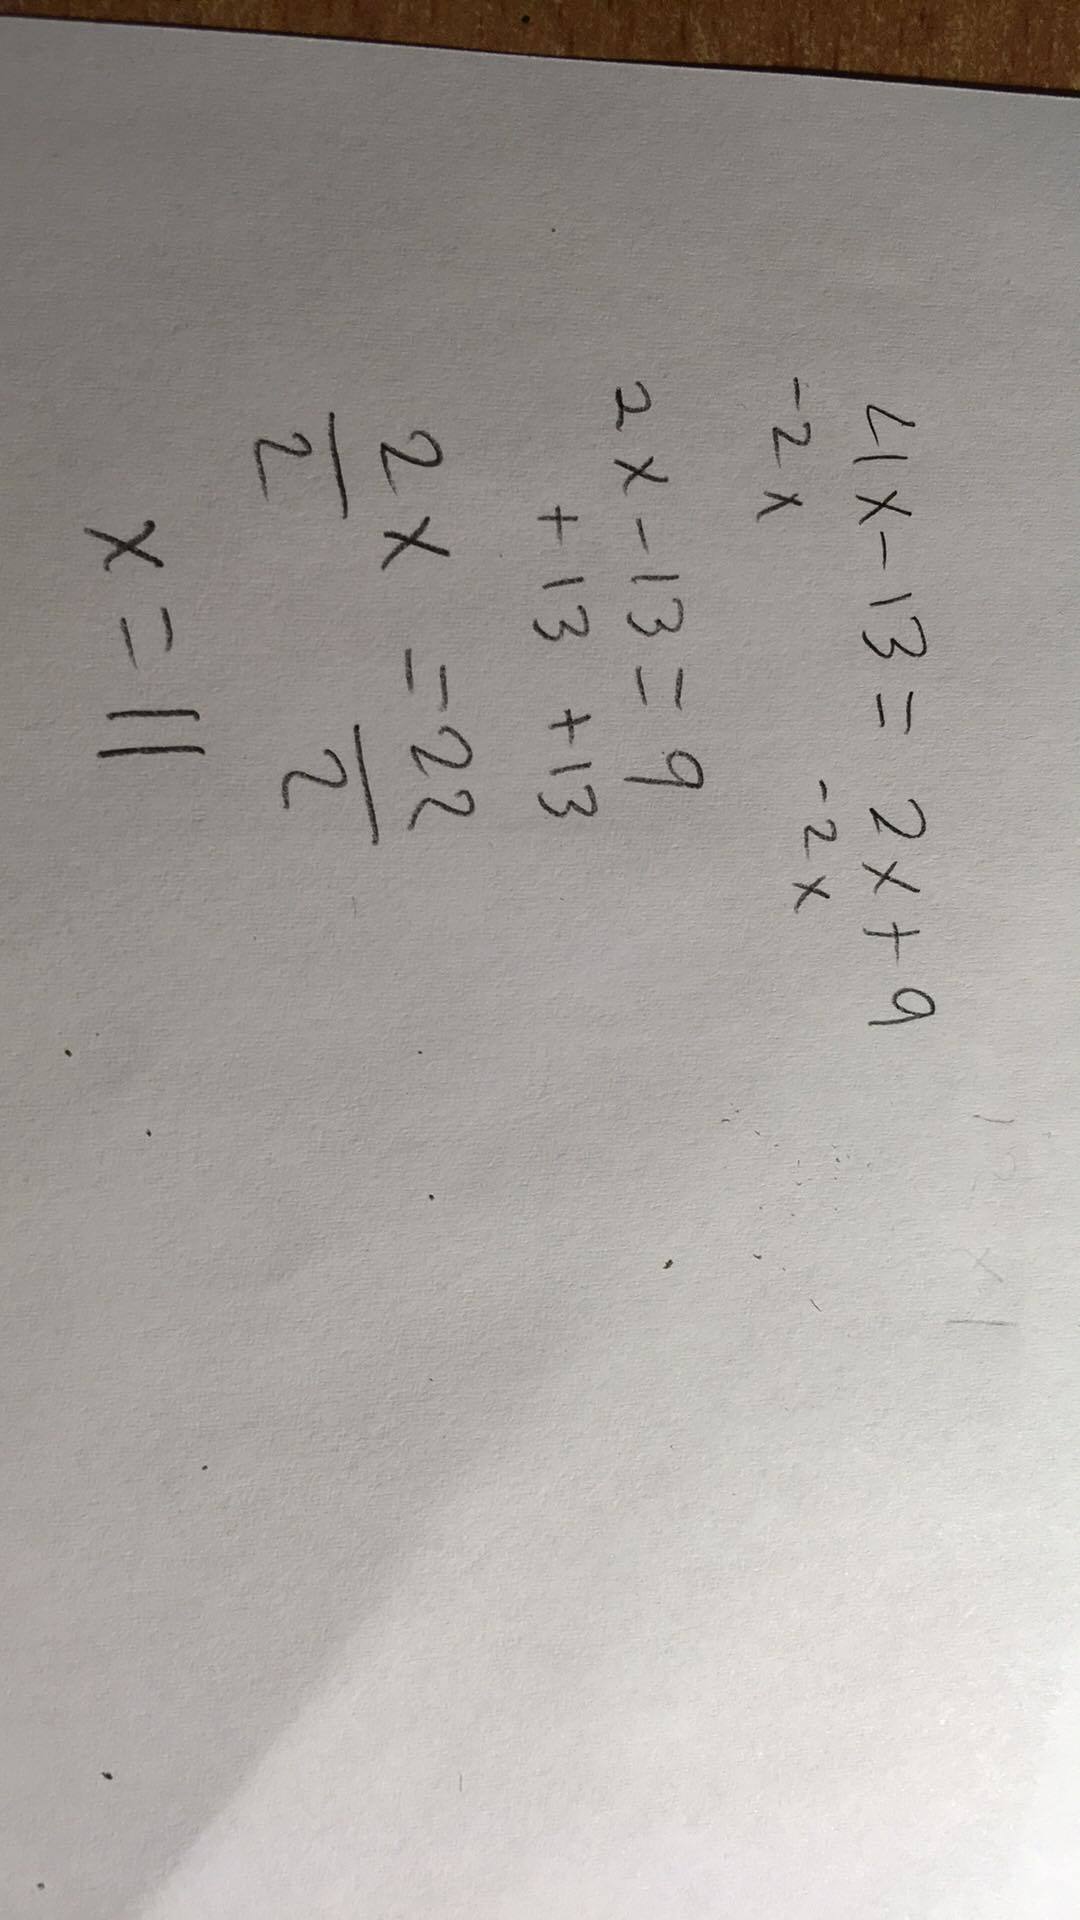 4x-13 = 2x+9
-2x -2x
2x-13 = 9
+13 +13
2x = 22
2 2
x = 11